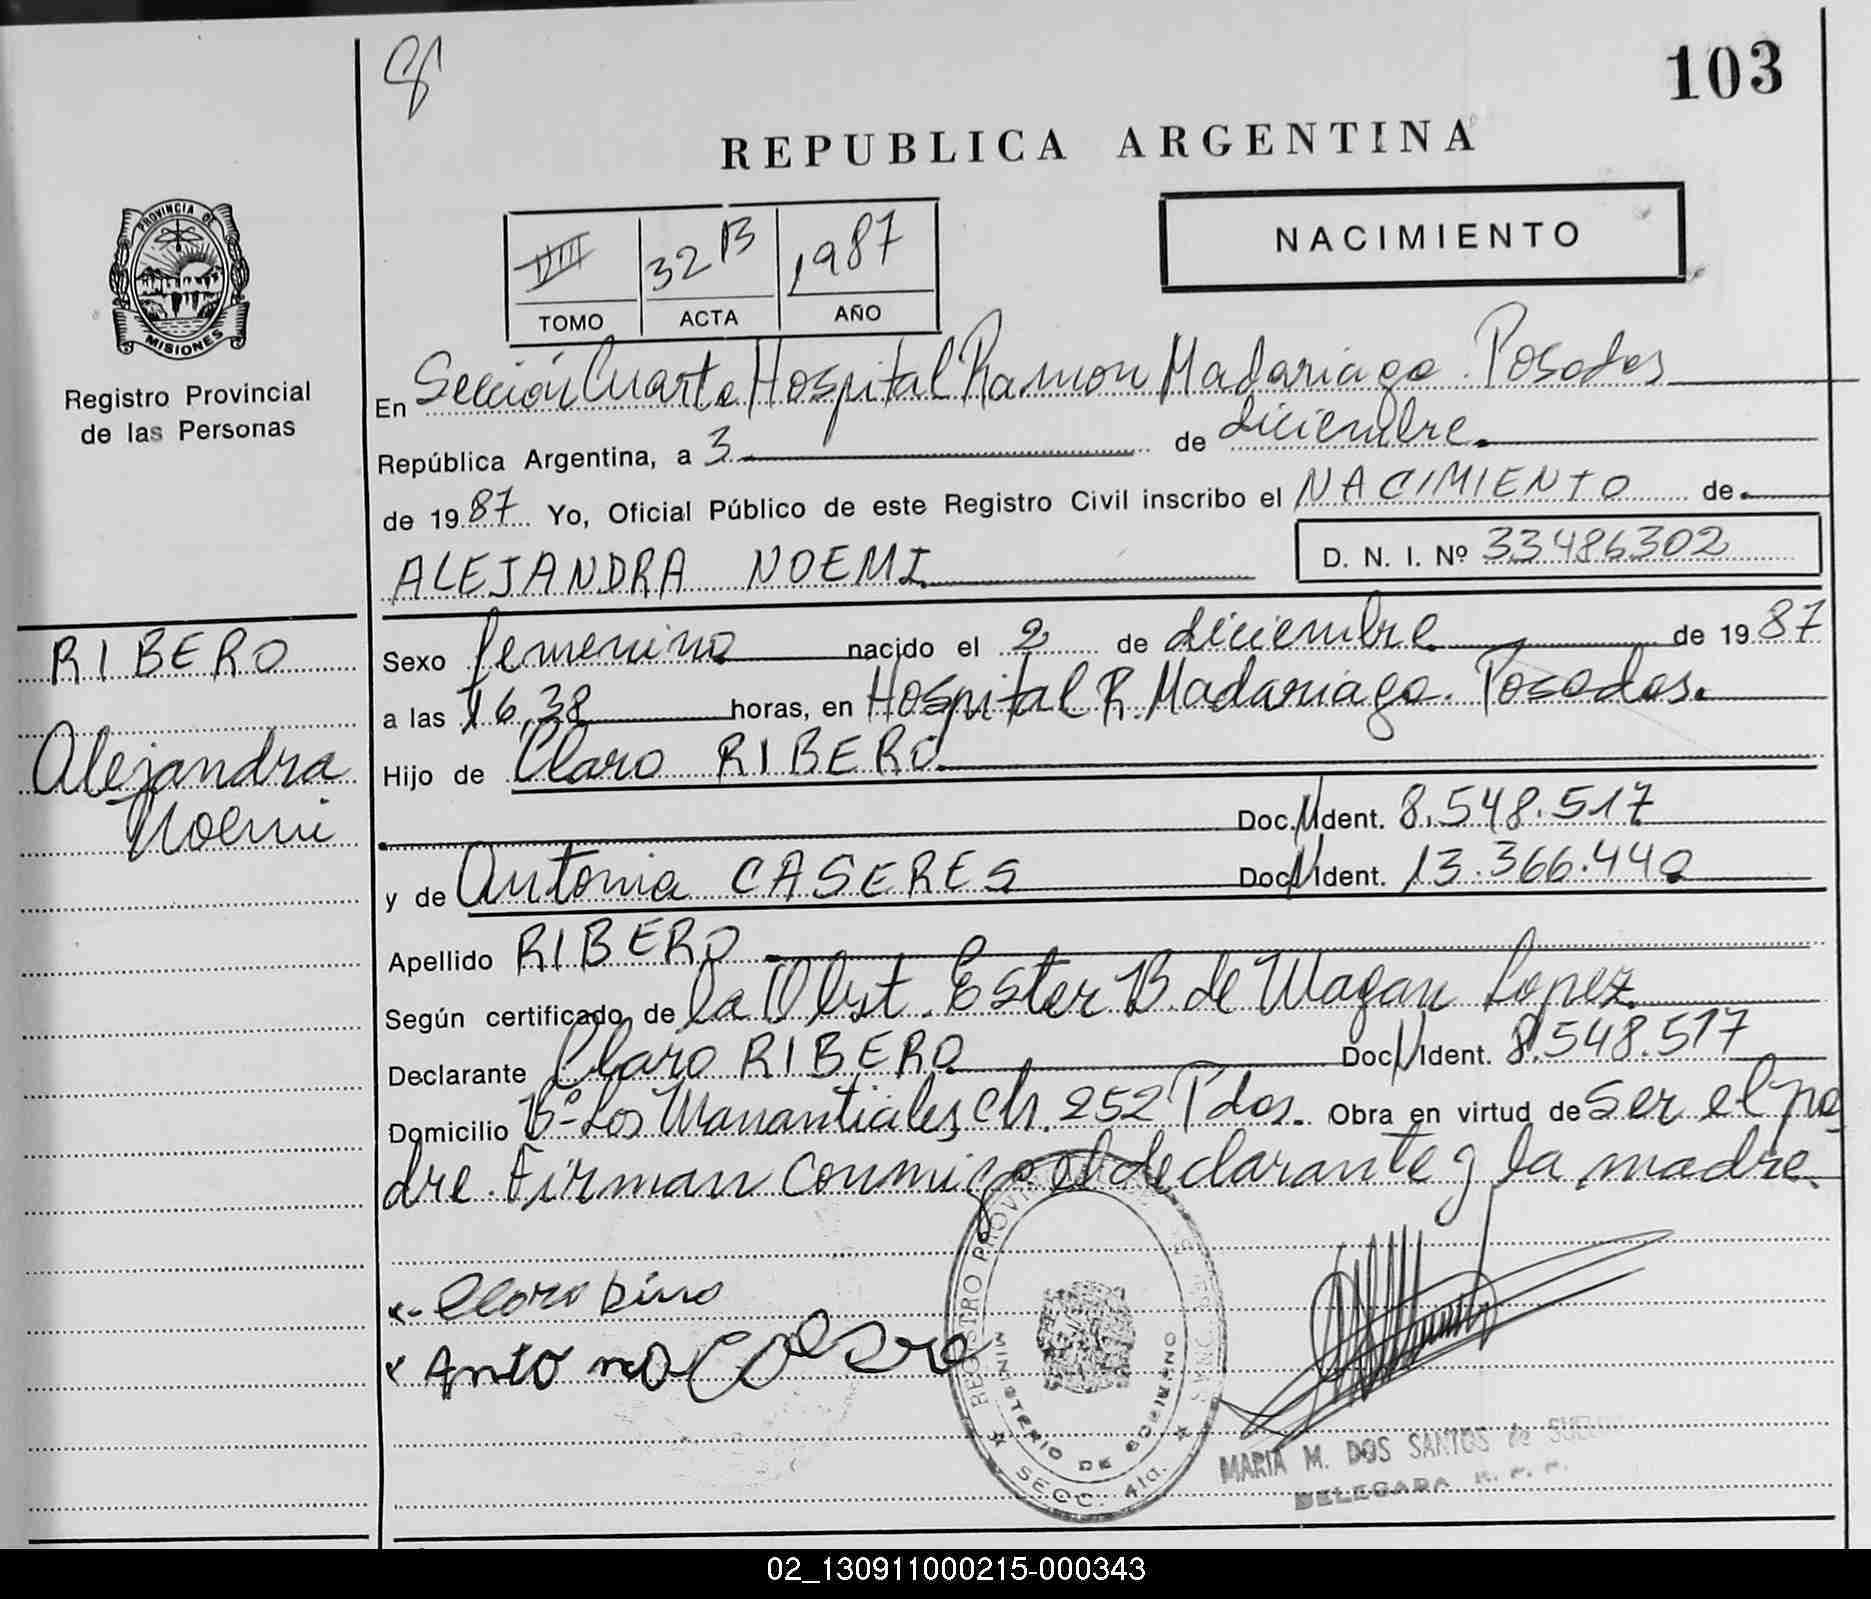 103
REPUBLICA ARGENTINA
PROVINCIA DE
MISIONES
Registro Provincial
de las Personas
VIII 32 B 1987
TOMO ACTA AÑO
NACIMIENTO
En Sección Cuarta Hospital Ramon Madariaga. Posadas
República Argentina, a 3 de diciembre.
de 1987 Yo, Oficial Público de este Registro Civil inscribo el NACIMIENTO de
ALEJANDRA NOEMI
D. N. I. Nº 33486302
RIBERO
Alejandra
Noemi
Sexo femenino nacido el 2 de diciembre de 1987
a las 16,38 horas, en Hospital R. Madariaga. Posadas.
Hijo de Claro RIBERO
Doc. N Ident. 8.548.517
y de Antonia CASERES Doc. N Ident. 13.366.440
Apellido RIBERO
Según certificado de la Obst. Ester B. de Magan Lopez.
Declarante Claro RIBERO Doc. N Ident. 8.548.517
Domicilio Bº Los Manantiales Ch. 252 Pdas. Obra en virtud de ser el pa
dre. Firman conmigo el declarante y la madre.
REGISTRO PROVINCIAL
MINISTERIO DE GOBIERNO
SECC. 4ta.
MARIA M. DOS SANTOS de
DELEGADA R. P. P.
02_130911000215-000343